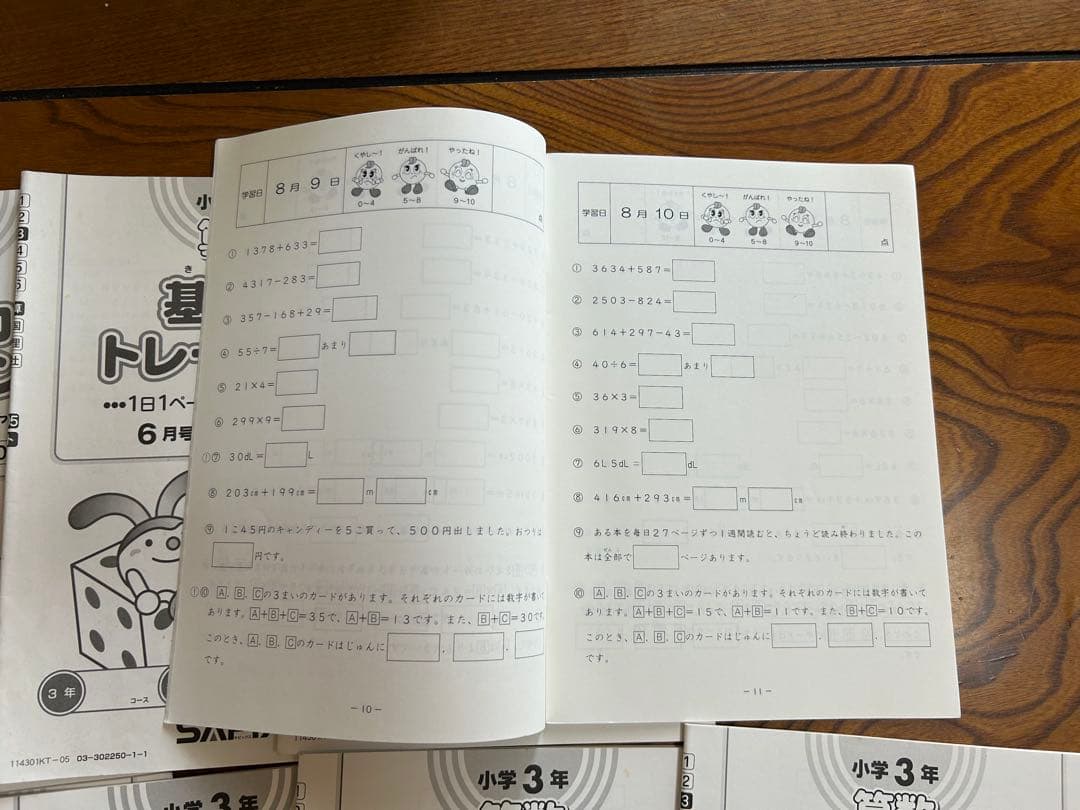 くやし〜！ がんばれ！ やったね！
学習日 8月 9日
0〜4 5〜8 9〜10
点
① 1378+633=
② 4317−283=
③ 357−168+29=
④ 55÷7= あまり
⑤ 21×4=
⑥ 299×9=
⑦ 30dL= L
⑧ 203cm+199cm= m cm
⑨ 1こ45円のキャンディーを5こ買って、500円出しました。おつりは
円です。
⑩ A、B、Cの3まいのカードがあります。それぞれのカードには数字が書いて
あります。A+B+C=35で、A+B=13です。また、B+C=30です
このとき、A、B、Cのカードはじゅんに 、 、
です。
−10−
くやし〜！ がんばれ！ やったね！
学習日 8月 10日
0〜4 5〜8 9〜10
点
① 3634+587=
② 2503−824=
③ 614+297−43=
④ 40÷6= あまり
⑤ 36×3=
⑥ 319×8=
⑦ 6L5dL= dL
⑧ 416cm+293cm= m cm
⑨ ある本を毎日27ページずつ1週間読むと、ちょうど読み終わりました。この
本は全部で ページあります。
⑩ A、B、Cの3まいのカードがあります。それぞれのカードには数字が書いて
あります。A+B+C=15で、A+B=11です。また、B+C=10です。
このとき、A、B、Cのカードはじゅんに 、 、
です。
−11−
小
基
トレー
•••1日1ペー
6月号
3年
コース
114301KT−05 03-302250-1-1
小学3年
小学3年
小学3年